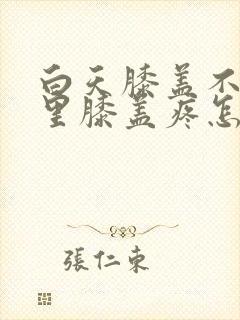 白天膝盖不
里膝盖疼怎
張仁東